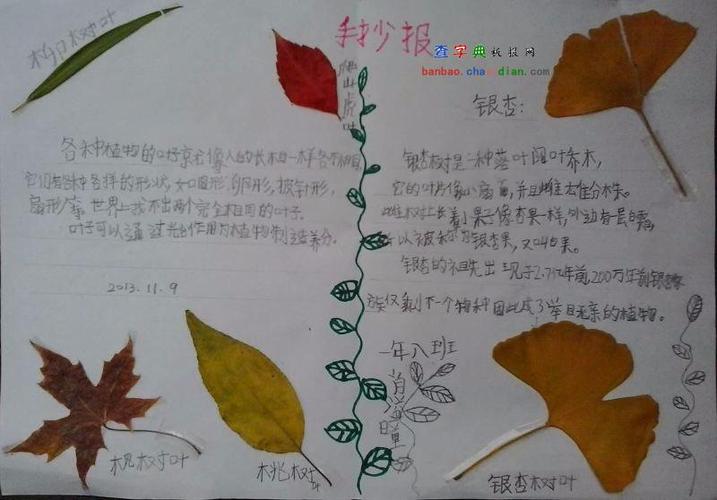 柳树叶
手抄报
查字典板报网
banbao.chazidian.com
爬山虎叶
银杏：
各种植物的叶好像人的长相一样各不相同，
它们有各种各样的形状，如圆形、卵形、披针形，
扇形等，世界上找不出两个完全相同的叶子。
叶子可以通过光合作用为植物制造养分。
2013.11.9
银杏树是一种落叶阔叶乔木，
它的叶片像小扇面，并且雌雄分株。
雌树上长着小果子像杏果一样，外边有层白霜，
所以被称为银杏果，又叫白果。
银杏的祖先出现于2.7亿年前,200万年前银杏
族仅剩下一个物种因此成了举目无亲的植物。
一年八班
枫树叶
桃树叶
银杏树叶